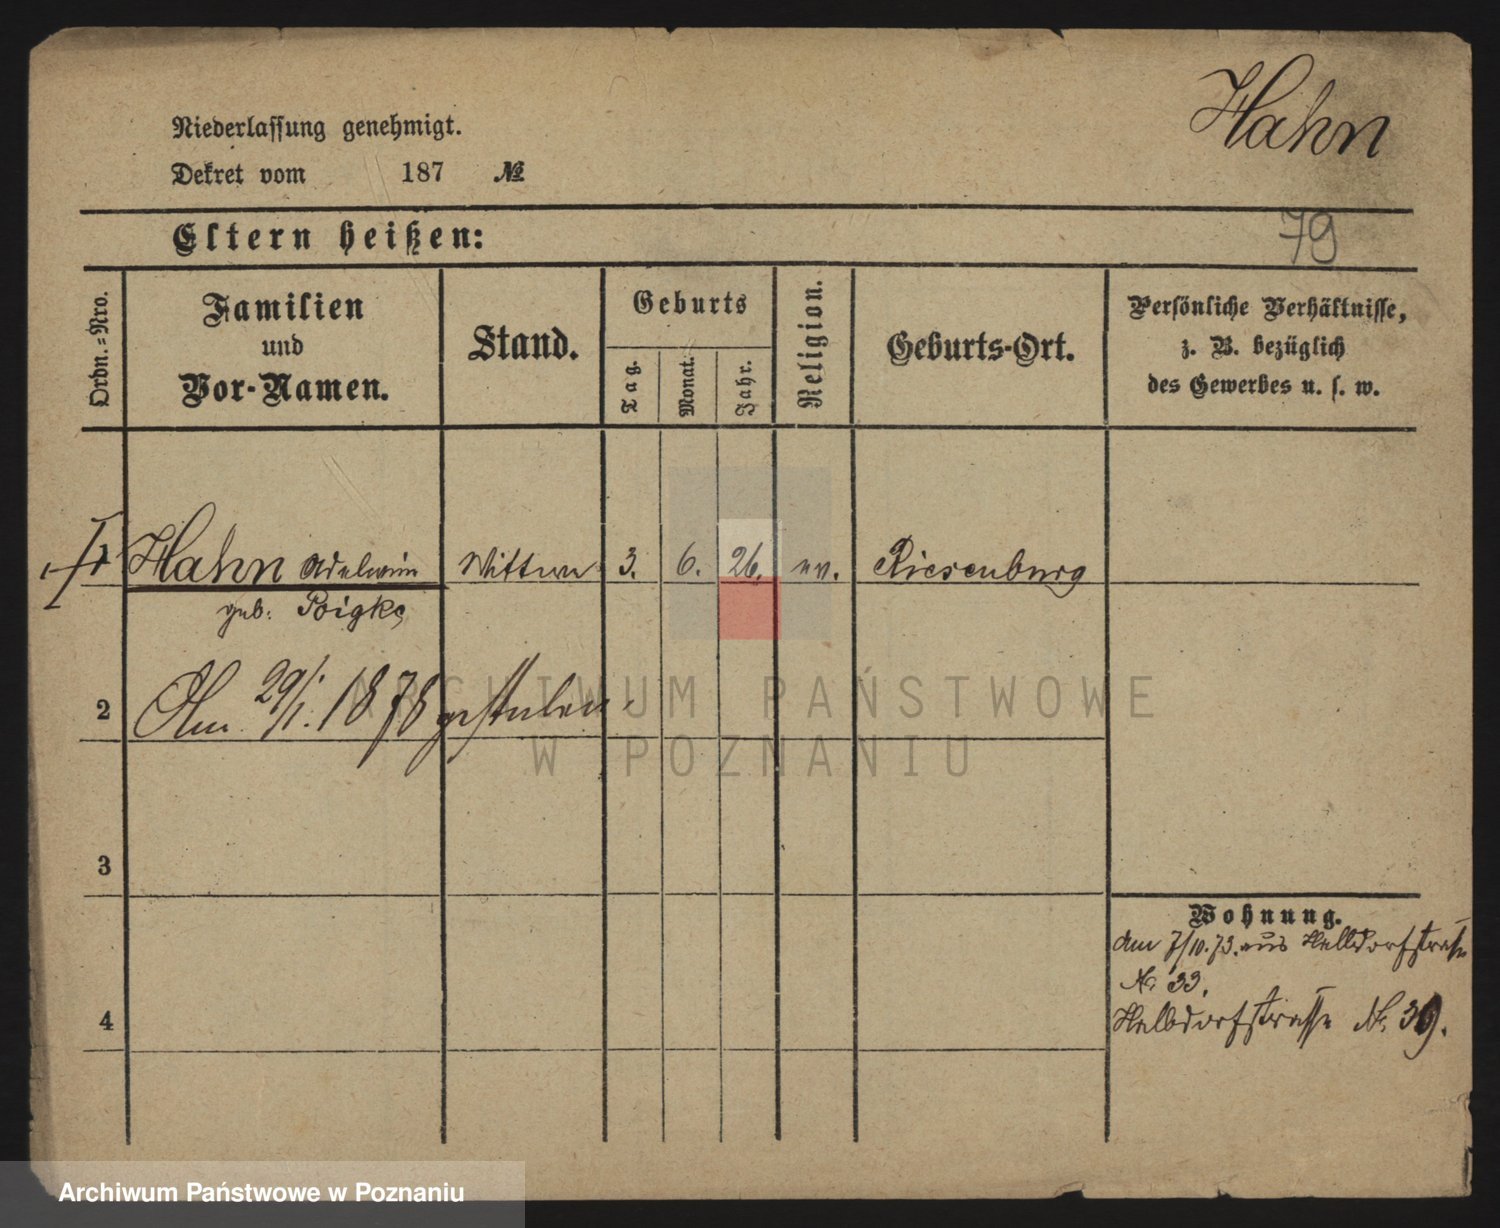 Hahn
Niederlassung genehmigt.
Dekret vom 187 №
79
Eltern heißen:
Ordn.-Nro.
Familien
und
Vor-Namen.
Stand.
Geburts
Tag.
Monat.
Jahr.
Religion.
Geburts-Ort.
Persönliche Verhältnisse,
z. B. bezüglich
des Gewerbes u. s. w.
Hahn Wittwe 3. 6. 26. ev. Riesenburg
geb. Poigke
2 Am 29/1. 1878 gestorben.
ARCHIWUM PAŃSTWOWE
W POZNANIU
3
Wohnung.
Am 7/10.73. aus Halbdorfstrasse
№ 33.
4
Halbdorfstrasse № 39.
Archiwum Państwowe w Poznaniu